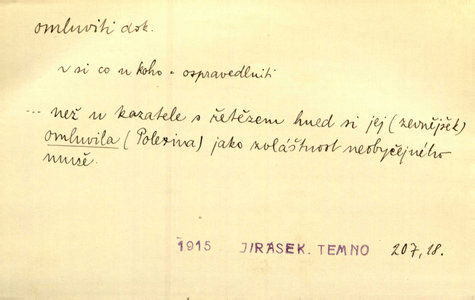 omluviti dok.
v si co u koho = ospravedlniti
... než u kazatele s řetězem hned si jej (zevnějšek)
omluvila (Polexina) jako zvláštnost neobyčejného
muže.
1915 JIRASEK. TEMNO 207, 18.